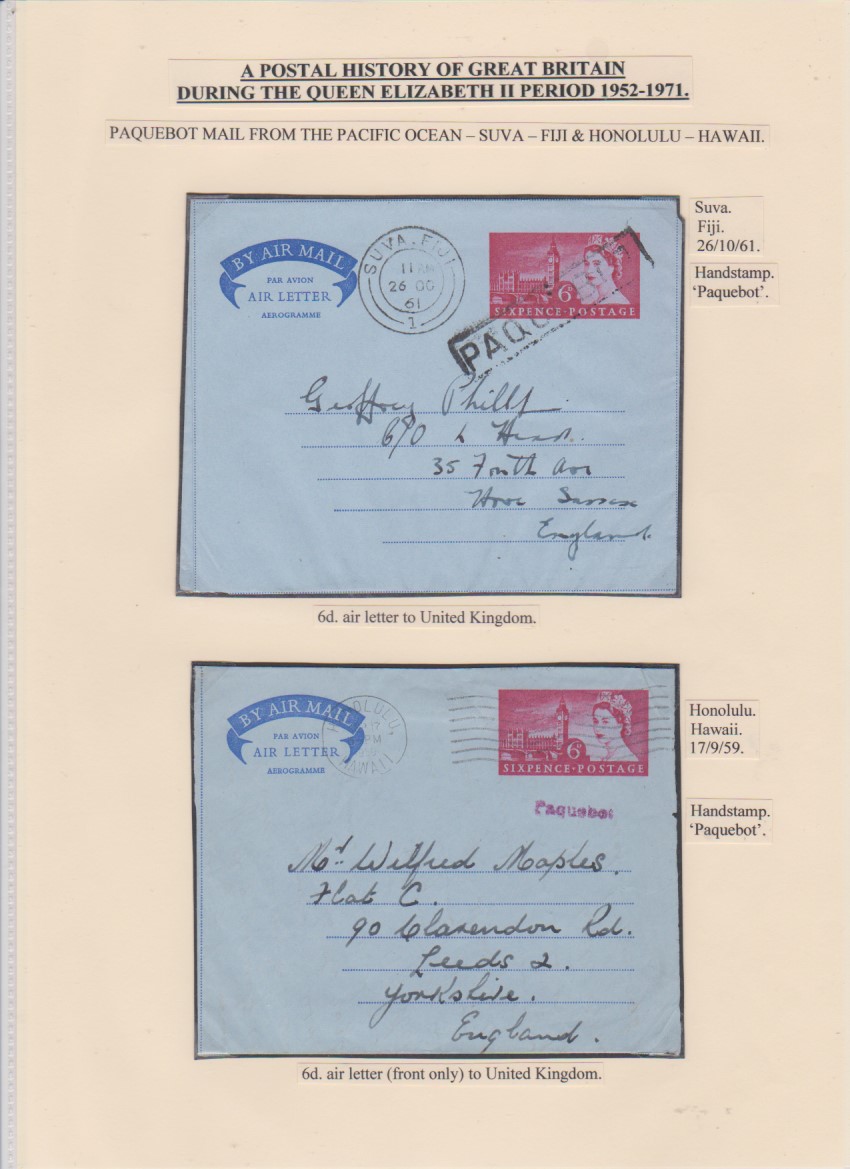 A POSTAL HISTORY OF GREAT BRITAIN
DURING THE QUEEN ELIZABETH II PERIOD 1952-1971.
PAQUEBOT MAIL FROM THE PACIFIC OCEAN – SUVA – FIJI & HONOLULU – HAWAII.
Suva.
Fiji.
26/10/61.
Handstamp.
'Paquebot'.
BY AIR MAIL
PAR AVION
AIR LETTER
AEROGRAMME
SUVA. FIJI
11 AM
26 OC
61
1
6D
SIXPENCE·POSTAGE
PAQUEBOT
Geoffrey
35 Fourth Ave
Hove Sussex
England.
6d. air letter to United Kingdom.
Honolulu.
Hawaii.
17/9/59.
Handstamp.
'Paquebot'.
BY AIR MAIL
PAR AVION
AIR LETTER
AEROGRAMME
HONOLULU,
PM
HAWAII
6D
SIXPENCE·POSTAGE
Paquebot
Wilfred Maples.
Flat C.
90 Clarendon Rd.
Leeds 2.
Yorkshire.
England.
6d. air letter (front only) to United Kingdom.